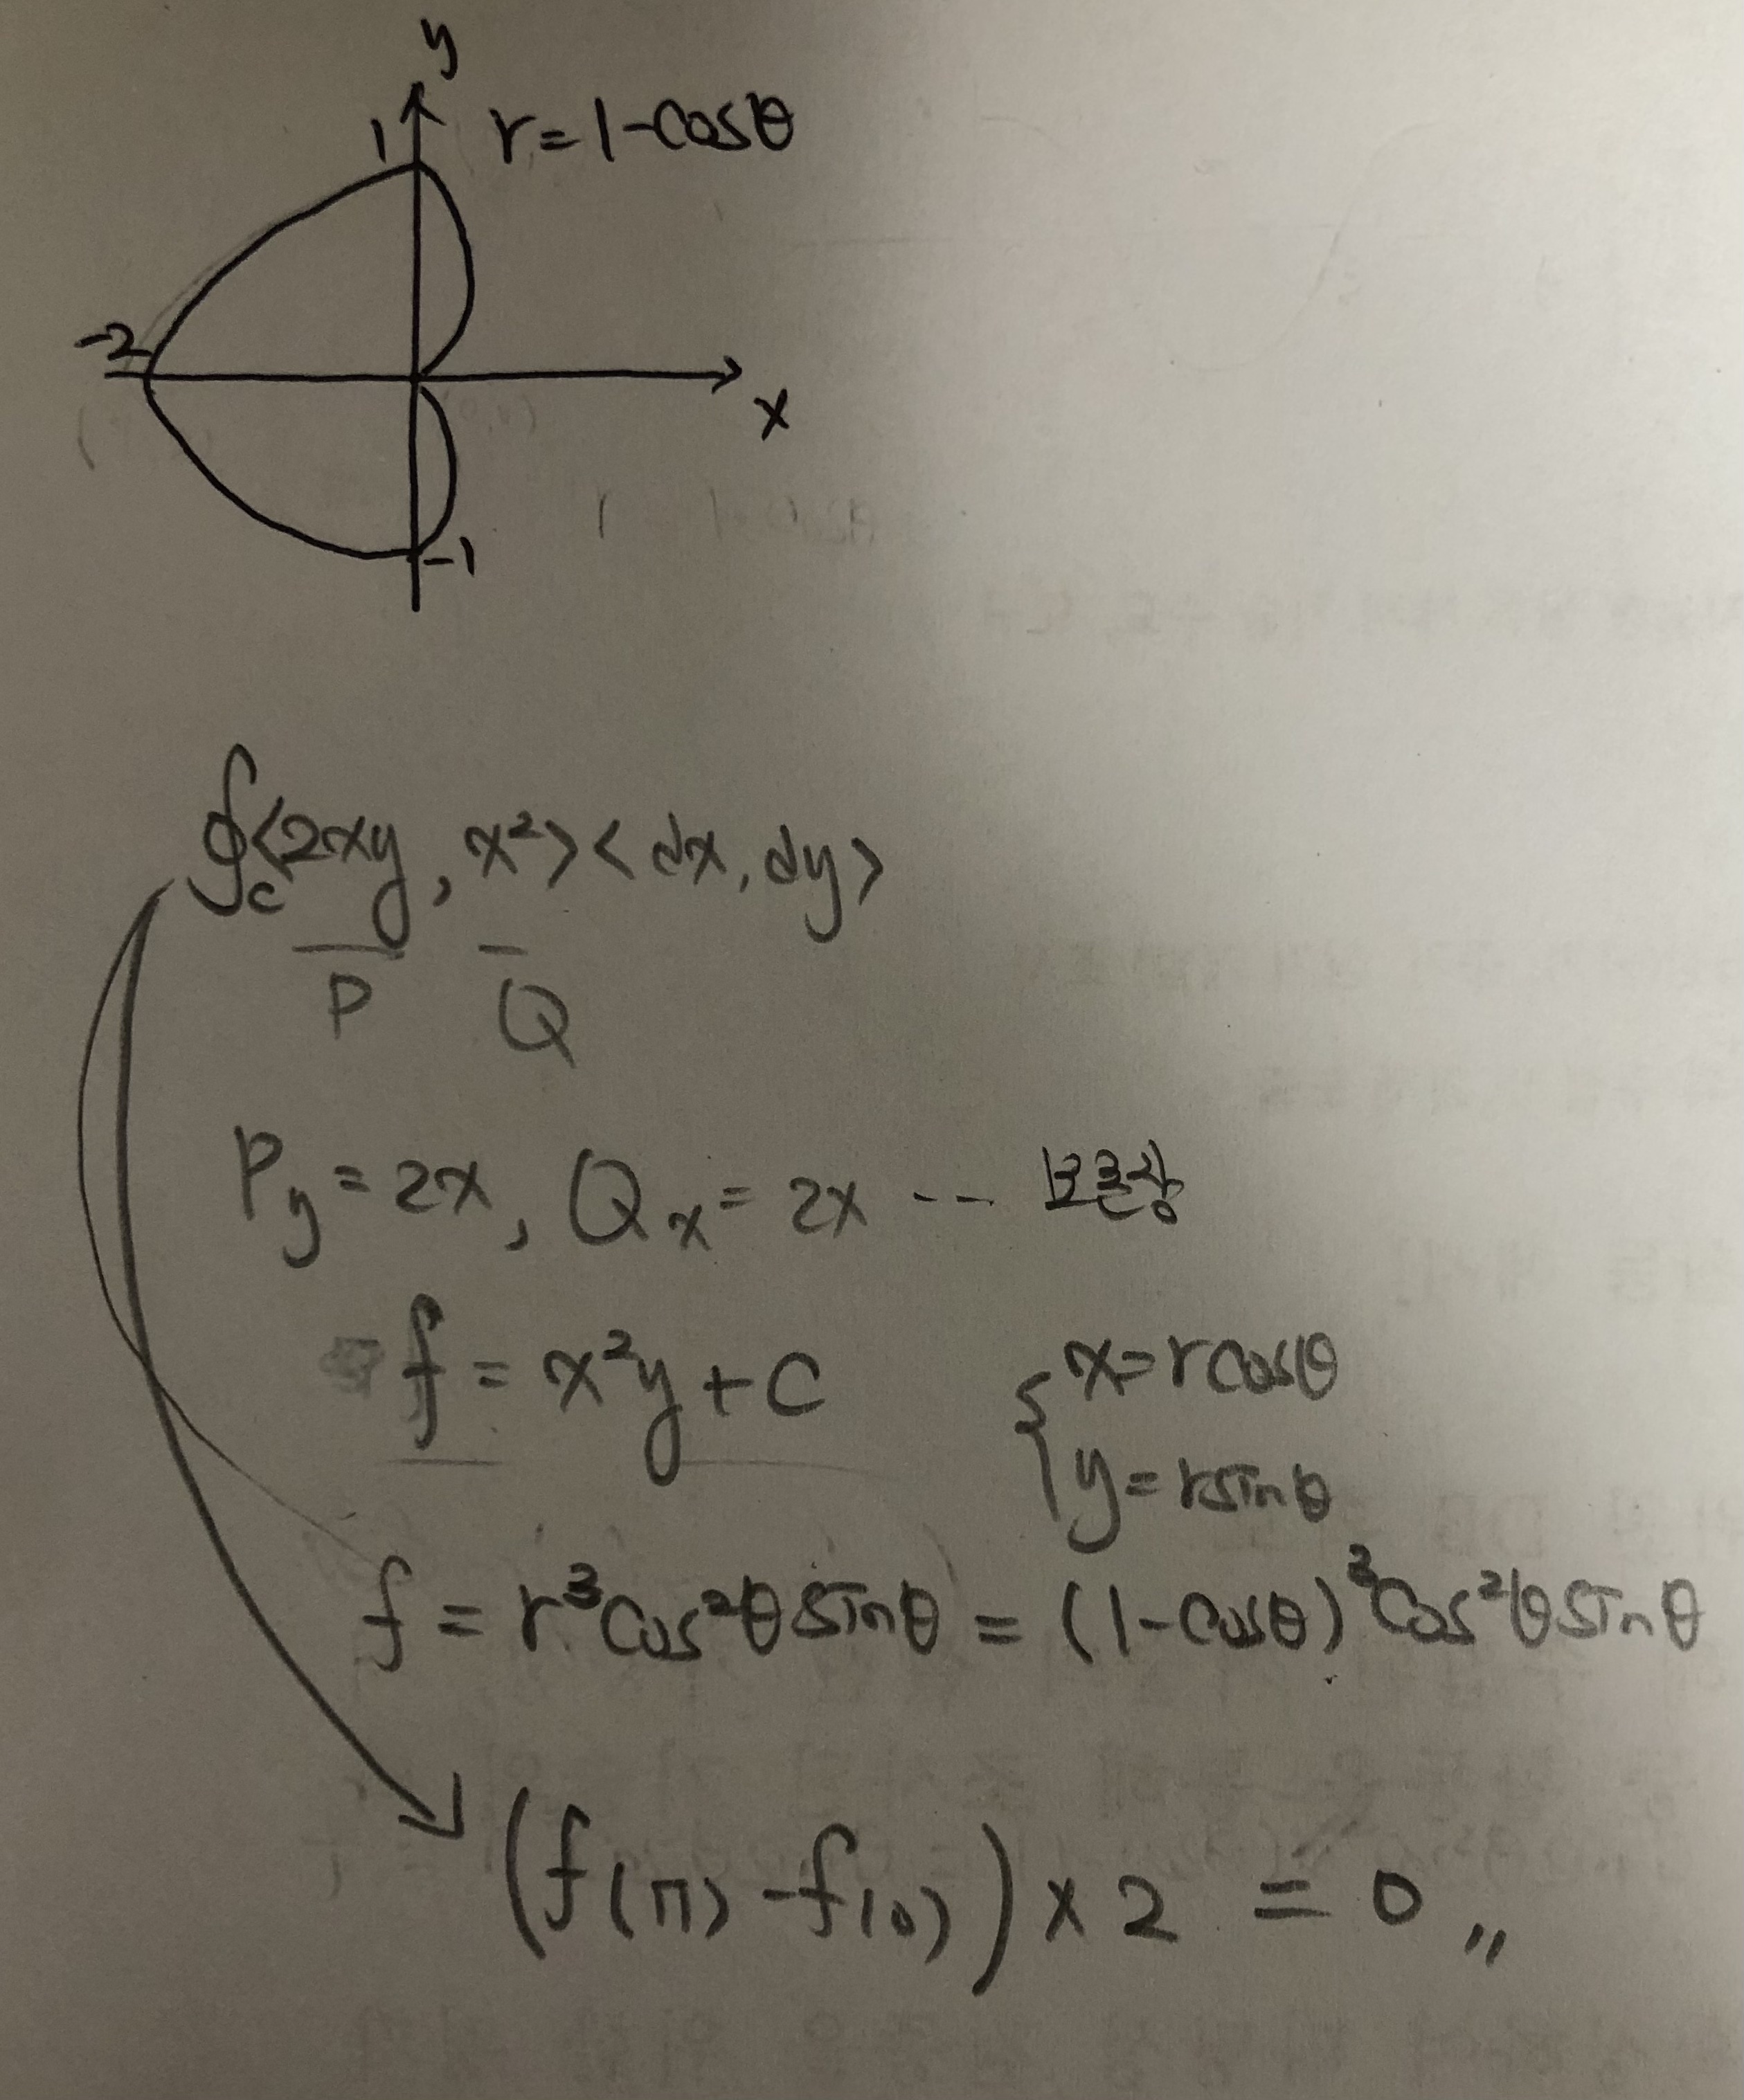 y
1 r=1-cosθ
-2
x
-1
∮c<2xy, x²><dx, dy>
P Q
Py=2x, Qx=2x -- 보존장
f = x²y+C
{x=rcosθ
y=rsinθ
f = r³cos²θsinθ = (1-cosθ)³cos²θsinθ
(f(π)-f(0))×2 = 0〃